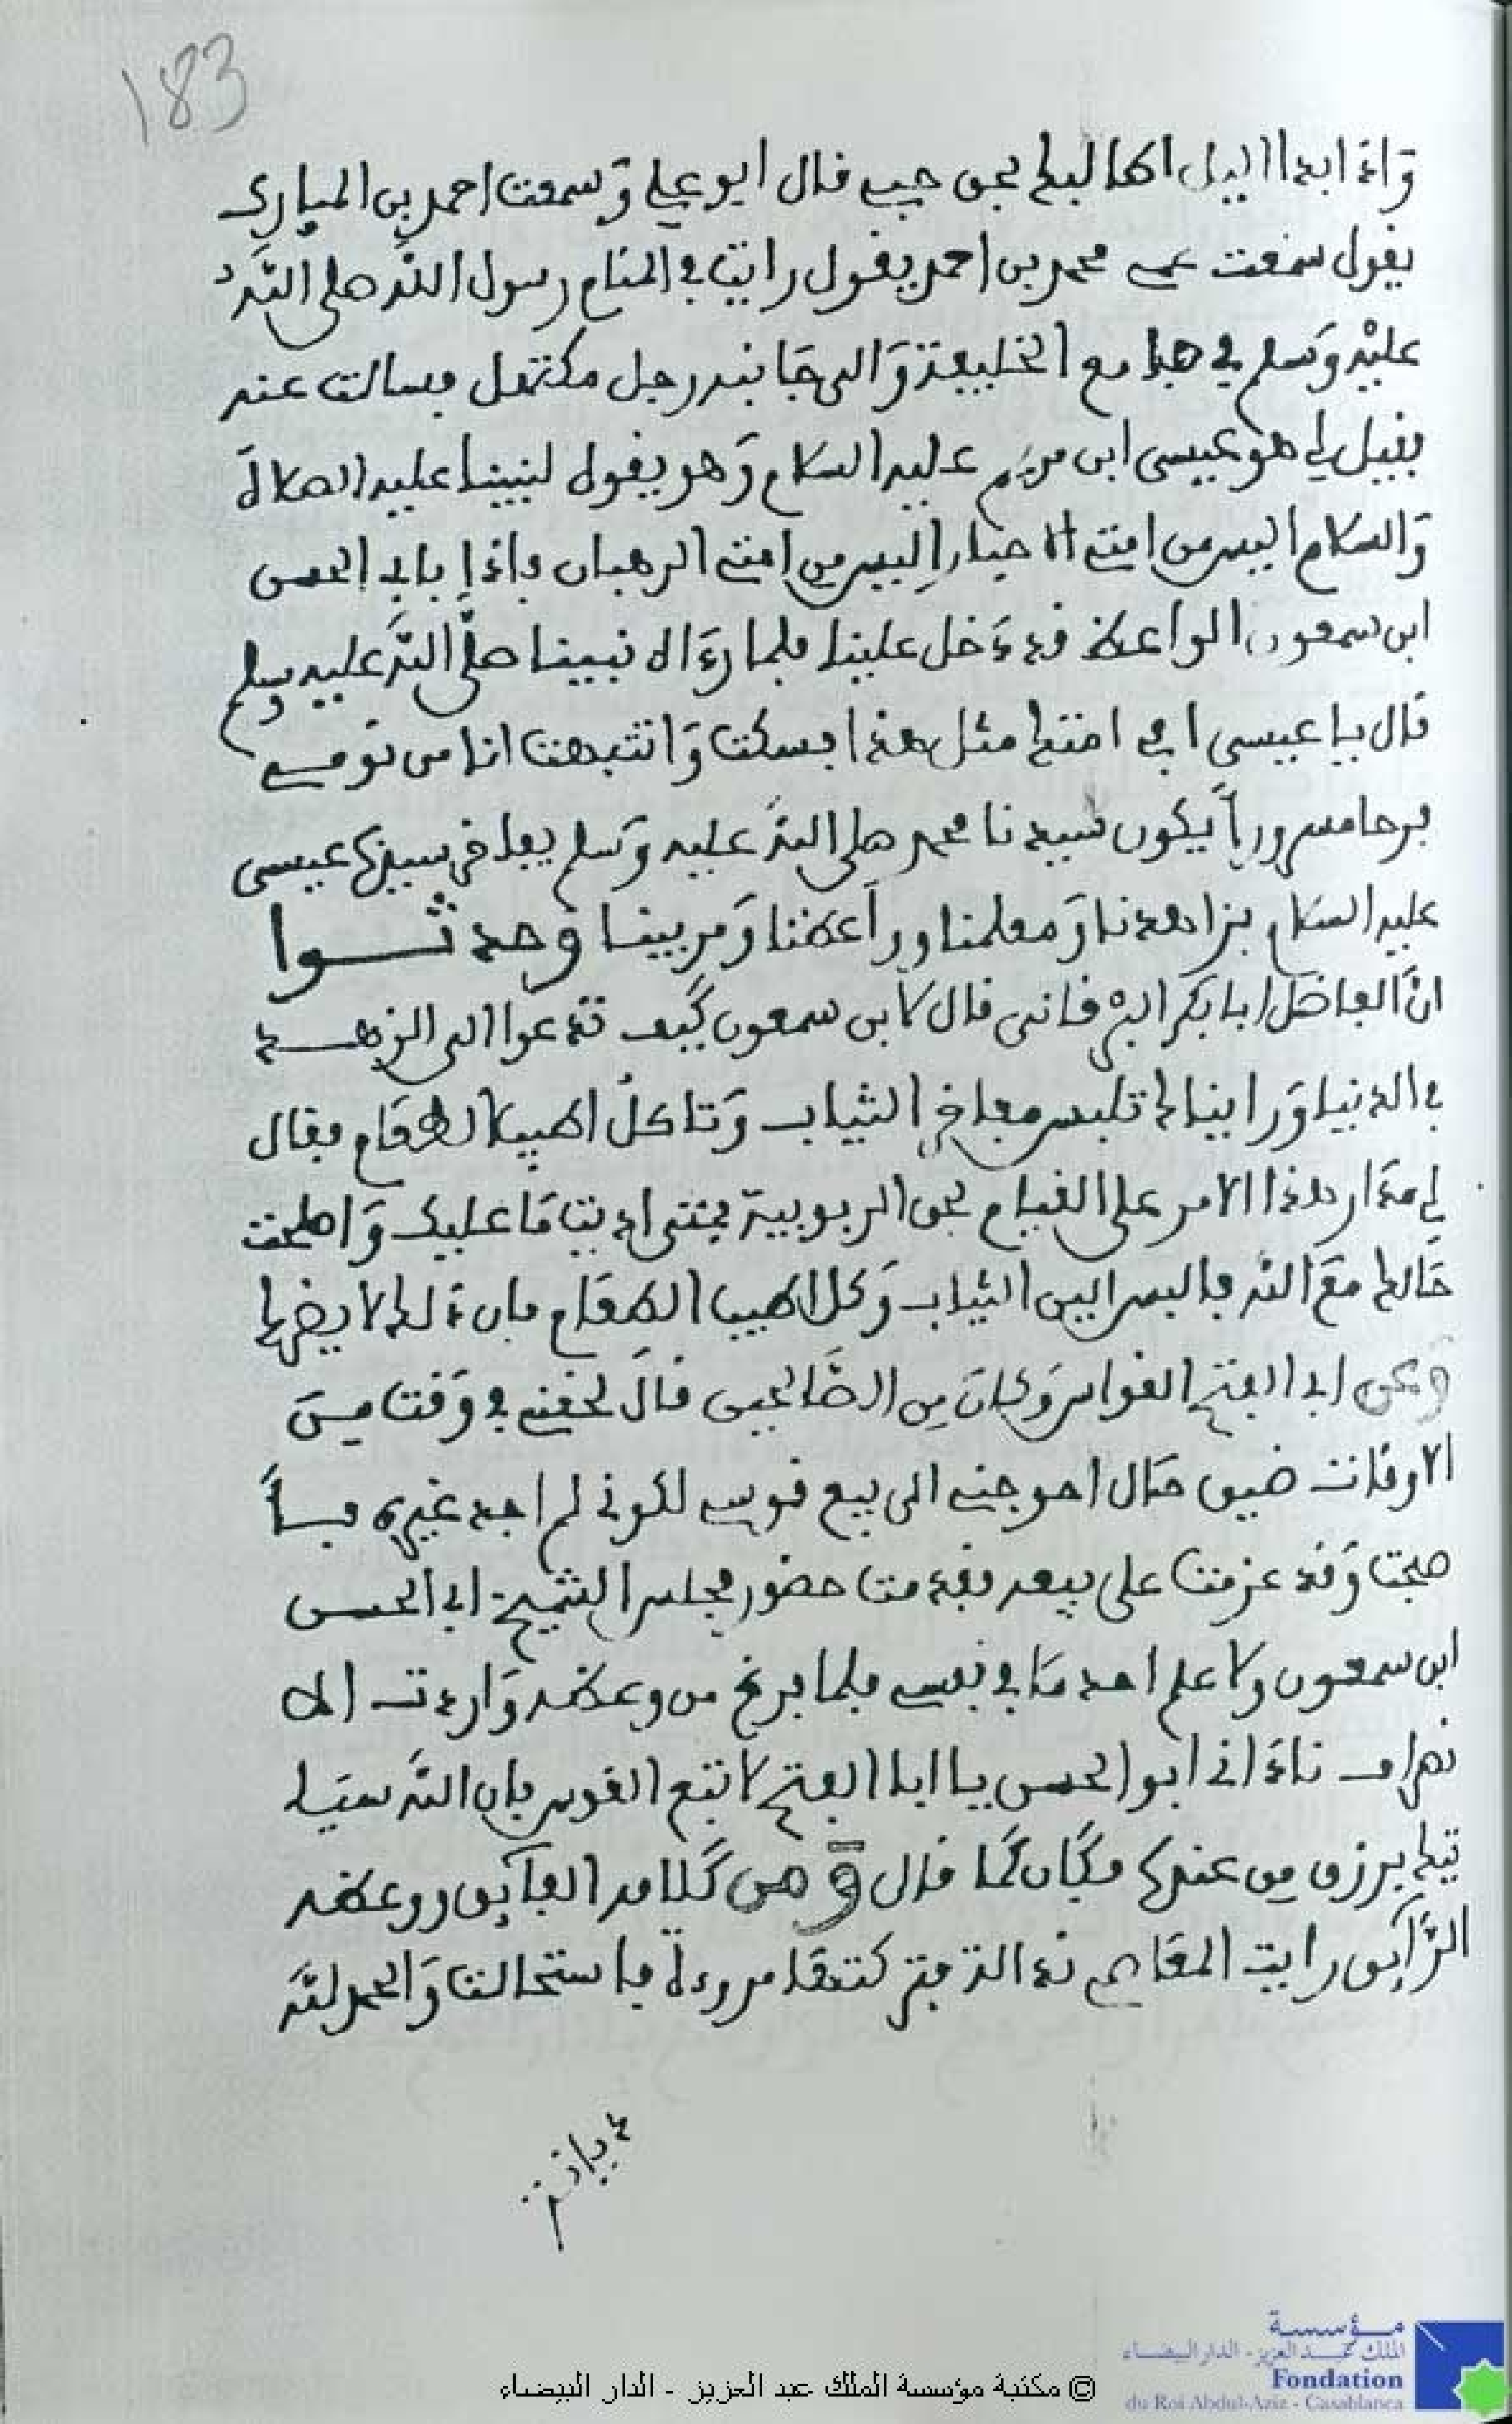 183
وَاذا ابدا اليك اطالبك بحق حب فال ابو علي وَسمعت احمد بن المبارك
يفول سمعت عمي محمد بن احمد يفول رايت في المنام رسول الله صلى الله
عليْه وَسلم في جامع الخليفة وَالى جَانبه رجل مكتهل فسالت عنه
ففيل لي هو عيسى ابن مريم عليه السلام وَهو يفول لنبينا عليه الصلاة
وَالسلام اليس من امتي الاحبار اليس من امتي الرهبان فاذا بابي الحسن
ابن سمعون الواعظ فد دَخل علينا فلما رءَاه نبينا صلَّى اللهُ عليه وسلم
فَال يا عيسى ا في امتك مثل هذا فسكت وَانتبهت انا من نومي
فرحا مسروراً يكون سيدنا محمد صلى اللهُ عليه وَسلم يفاخر سيدنا عيسى
عليه السلام بزاهدنا وَمعلمنا وواَعظنا وَمربينا وحدثوا
انَّ الفاضل ابا بكر البرْفانى فال لابن سمعون كَيف تدعوا الى الزهد
في الدنيا وَراينا تلبس فاخر الثياب وَتاكلُ اطيب الطعَام ففال
لي مدَار هذا الامر على الفيام بحق الربوبية فمتى اديت مَا عليك وَاصلحت
حَالك معَ الله فالبس الين الثياب وَكل اطيب الطعَام فان ذلك لا يضرك
وعن ابي الفتح الفواس وَكانَ من الصَّالحين فالَ لحفني في وَفت منَ
الاوفَات ضيق حَال احوجني الى بيع فوسي لكوني لم اجد غيره فـ
صبحت وَفد عزمت على بيعه ففدمت حضور مجلس الشيخ ابي الحسن
ابن سمعون ولا علم احد مَا في نفسي فلما فرغ من وعظه وَاردت الا
نصراف نادَاني ابو الحسن يا ابا الفتح لا تبع الفوس فان اللهَ سيَا
تيك برزق من عنده فكَان كَما فال وَ من كَلامه الفآيق ووعظه
الرَّآيق رايت المعَاصي نذالة فتركتها مروءة فاستحالت وَالحمد لله
ديانة
© مكتبة مؤسسة الملك عبد العزيز - الدار البيضاء
مؤسسة
الملك عبد العزيز - الدار البيضاء
Fondation
du Roi Abdul-Aziz - Casablanca